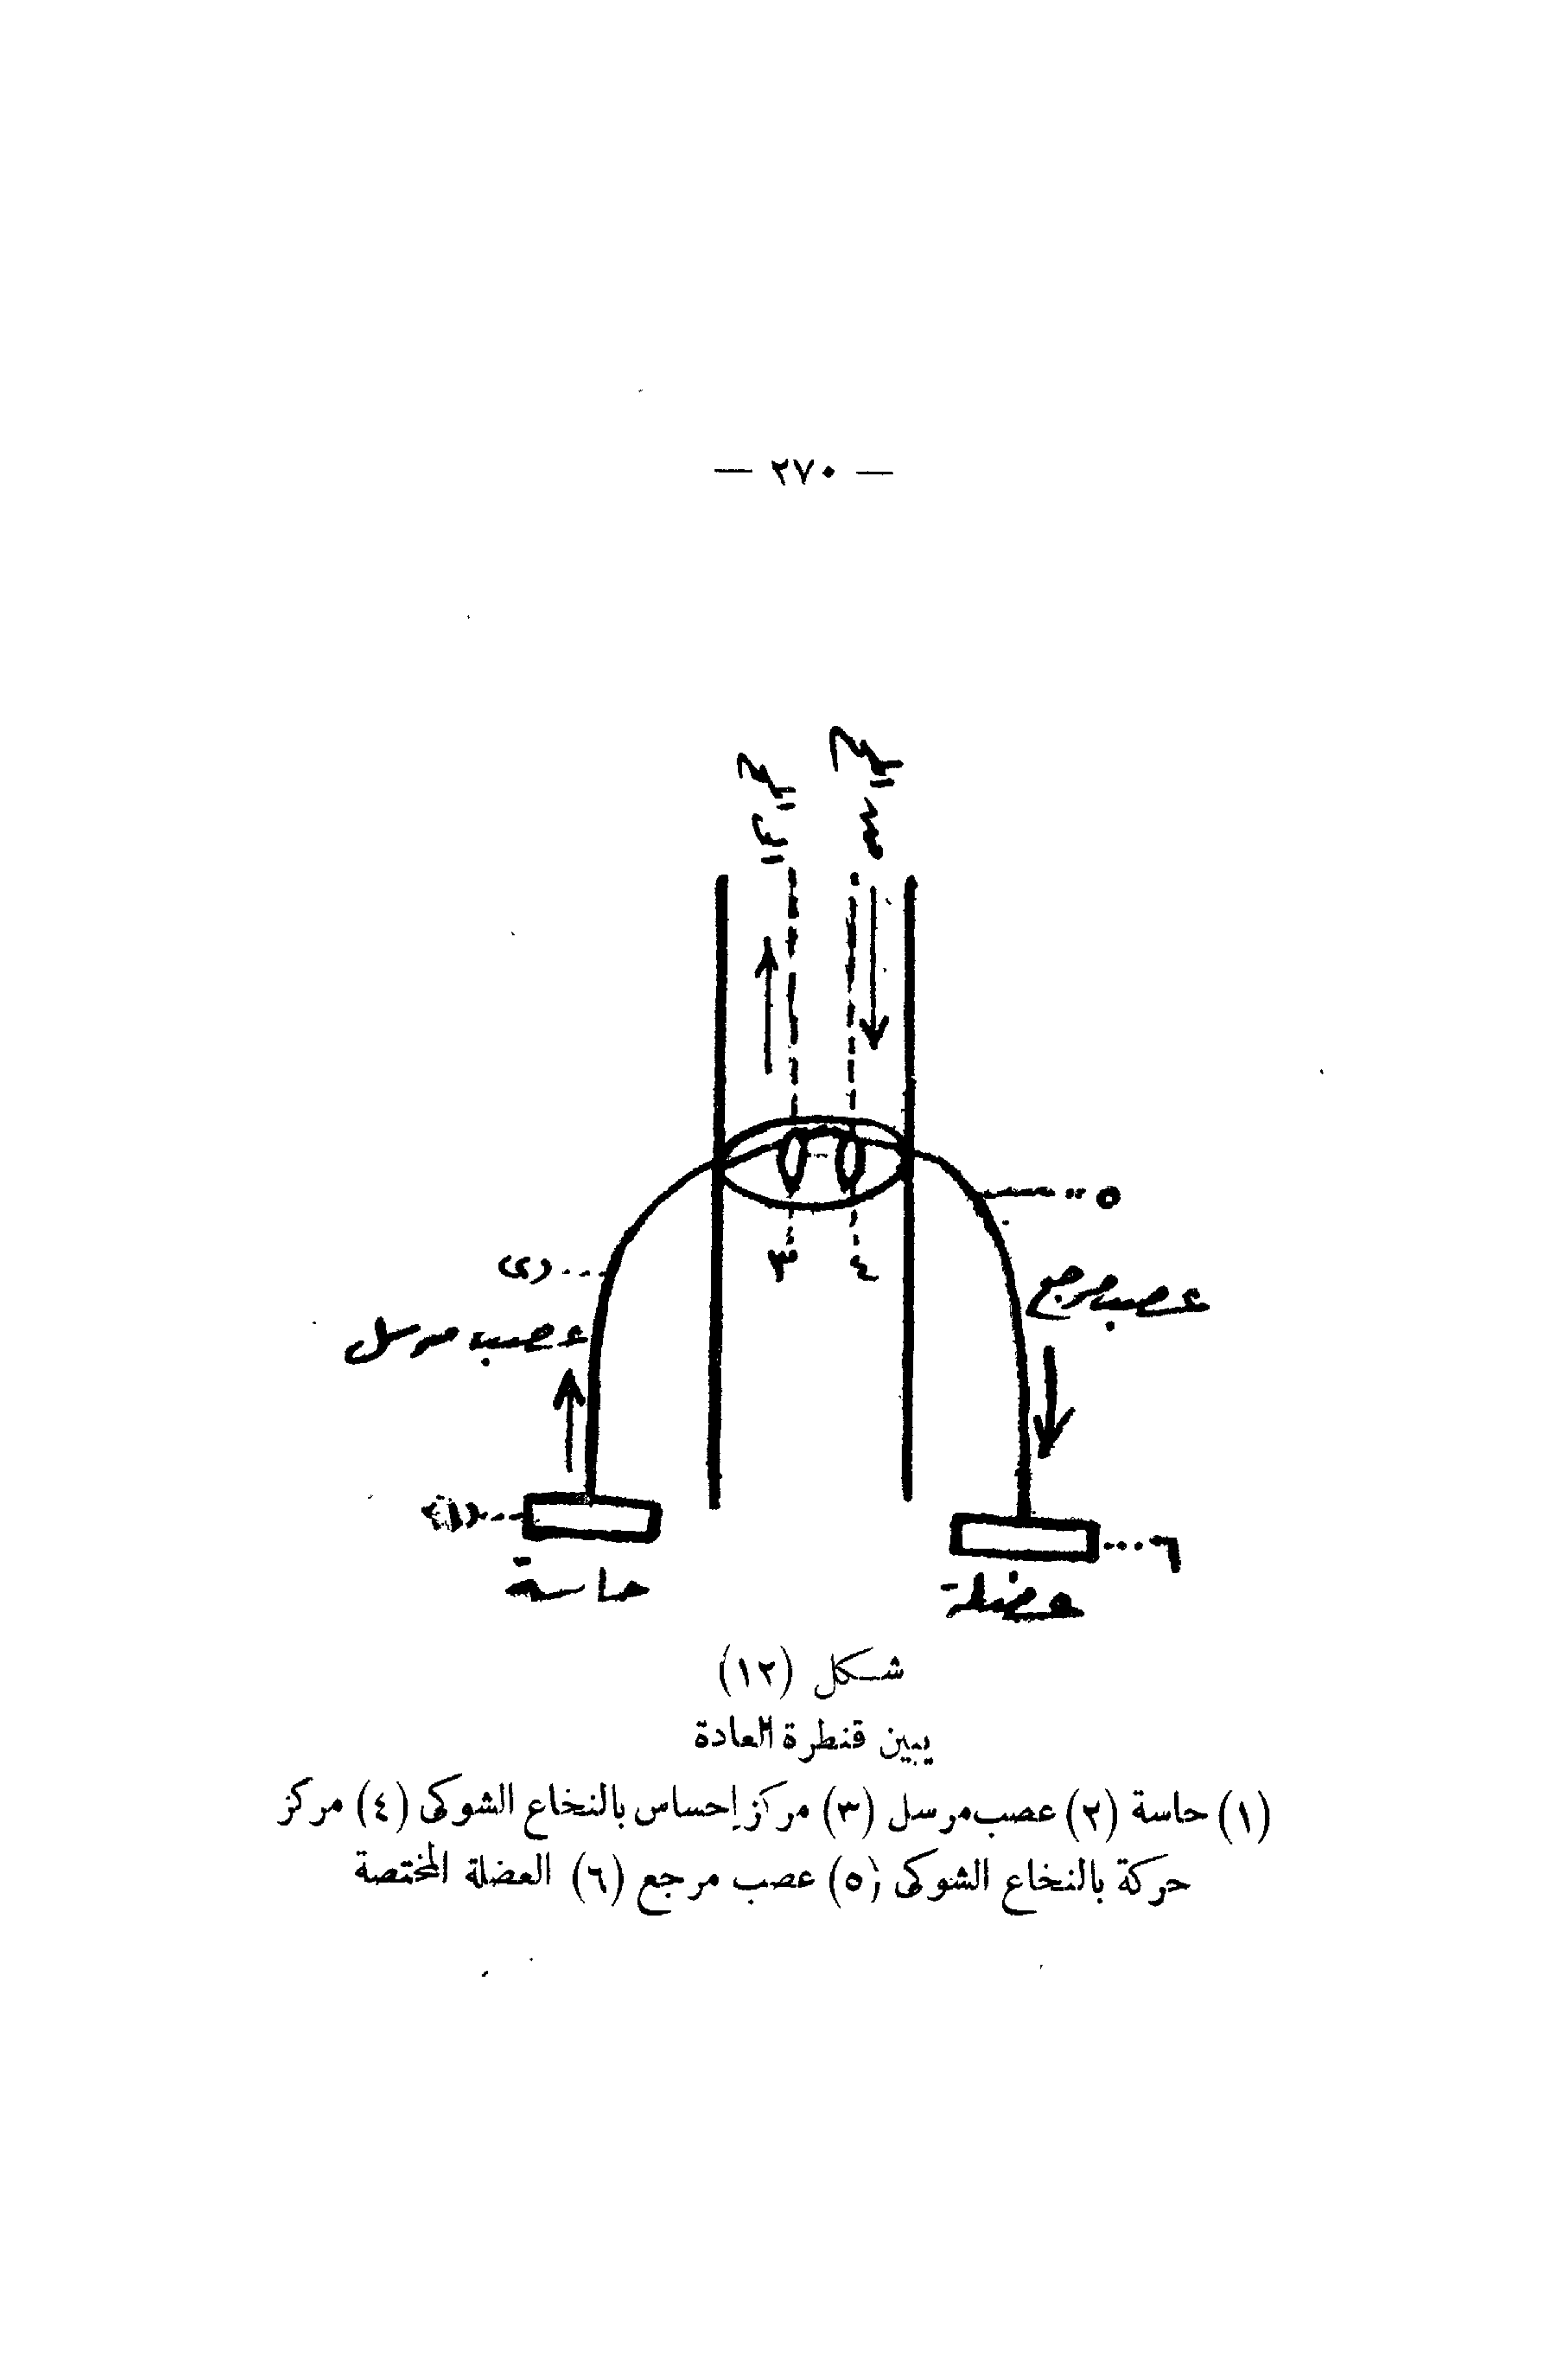 — ٢٧٠ —
الى المخ
من المخ
٥
(٢)
٣
٤
عصب مرجع
عصب مرسل
(١)
٦
حاسة
عضلة
شكل (١٢)
يبين قنطرة العادة
(١) حاسة (٢) عصب مرسل (٣) مركز إحساس بالنخاع الشوكى (٤) مركز
حركة بالنخاع الشوكى (٥) عصب مرجع (٦) العضلة المختصة